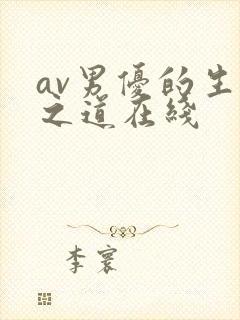 av男優的生
之道在綫
李寰